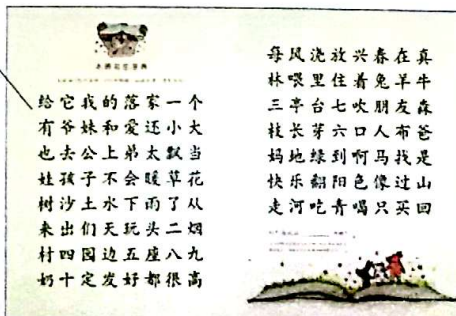 给它我的落家一个
有爷妹和爱还小大
也去公上弟太飘当
娃孩子不会暖草花
树沙土水下雨了从
来出们天玩头二烟
村四园边五座八九
奶十定发好都很高
每风浇放兴春在真
林喂里住着兔羊牛
三亭台七吹朋友森
枝长芽六口人布爸
妈地绿到啊马找是
快乐翻阳色像过山
走河吃青喝只买回